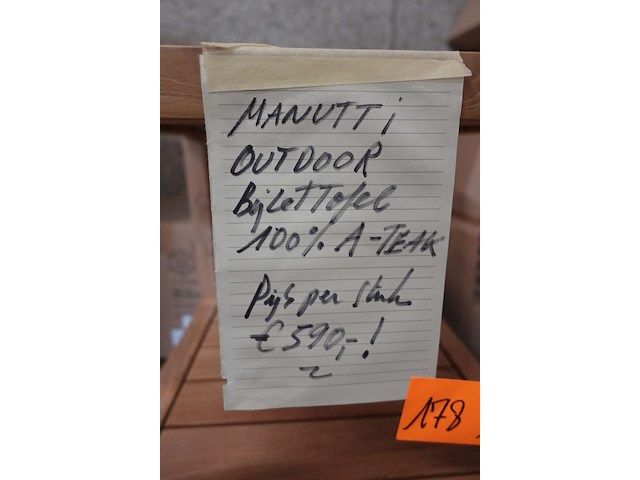 MANUTTi
OUTDOOR
BijZetTafel
100% A-TEAK
Prijs per stuk
€ 590,-!
178